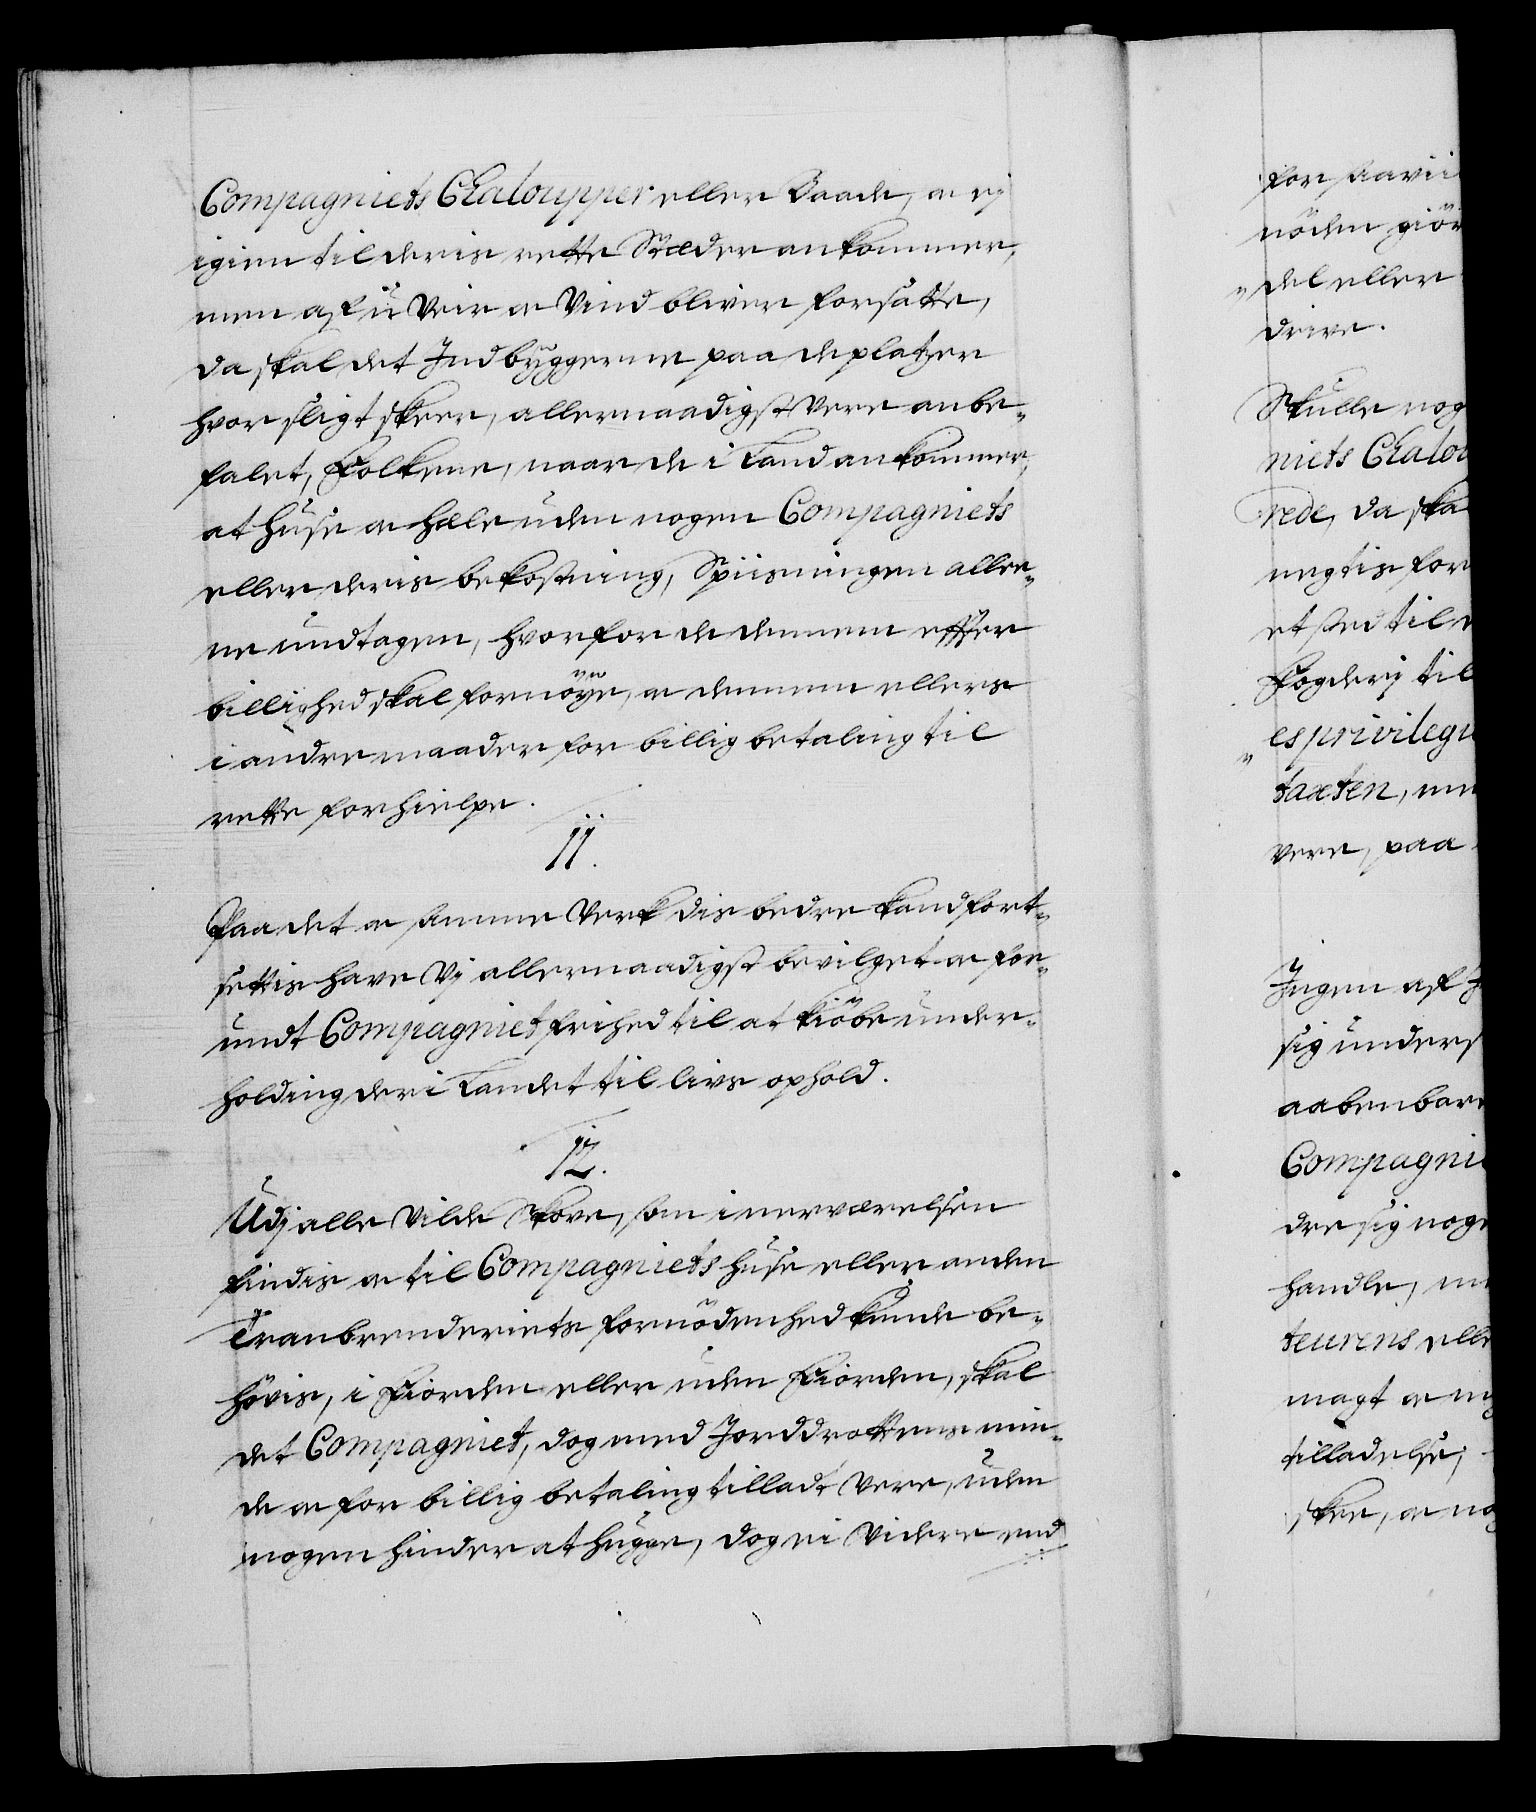 Compagniets Chaloupper eller Baade, og ej
igien til deris rette Stæder ankommer,
men af u Veir og Vind bliver forsatte,
da skal det Indbyggerne paa de platzer
hvor sligt skeer, allernaadigst være anbe-
falet, Folkene, naar de i Land ankommer,
at huse og hæle uden nogen Compagniets
eller deris bekostning, Spiisningen allee-
ne undtagen, hvorfor de dennem effter
billighed skal fornöye, og dennem ellers
i andre maader for billig betaling til
rette forhielpe.
11.
Paa det og samme Verk dis bedre kand fort-
settis have Vj allernaadigst bevilget og for-
undt Compagniet frihed til at kiöbe under-
holding der i Landet til livs ophold.
12.
Udj alle Vilde Skove, som i nerværelsen
findis og til Compagniets huse eller anden
Tranbrenderiets fornödenhed kunde be-
hövis, i Fiorden eller uden Fiorden, skal
det Compagniet, dog med Jorddrottens min-
de og for billig betaling tilladt være, uden
nogen hinder at hugge, dog ei Videre end
for saavii
nöden giör
del eller
drive.
Skulle nog
niets Chalou
rede, da ska
negtis for
et sted til
Fogderj til
es privilegi
taxten,
være, paa
Ingen af
sig unders
aabenbar
Compagni
dre sig nog
handle,
teurens elle
magt og
tilladelse,
skee, og no